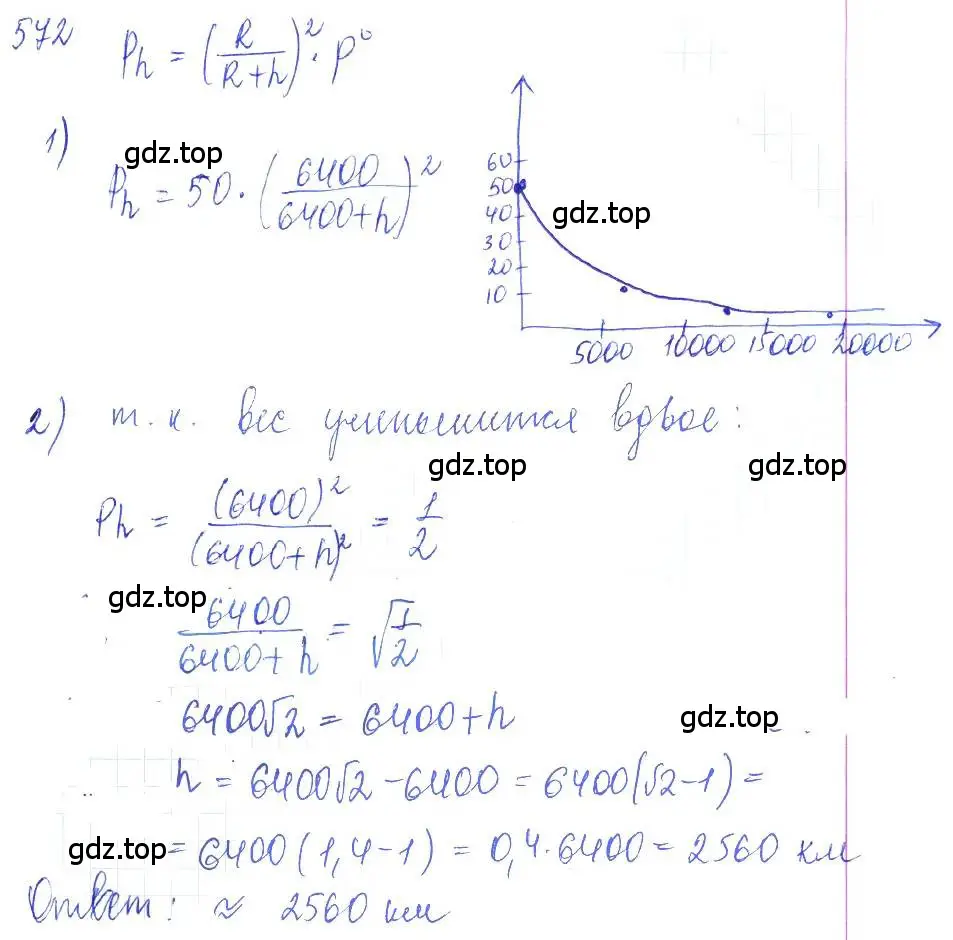 572 Ph = (R/(R+h))² · P⁰
1)
gdz.top
Ph = 50 · (6400/(6400+h))²
60
50
40
30
20
10
gdz.top
5000 10000 15000 20000
2) т.к. вес уменьшится вдвое:
gdz.top gdz.top
Ph = (6400)²/(6400+h)² = 1/2
gdz.top
6400/(6400+h) = √1/2
6400√2 = 6400+h
gdz.top
h = 6400√2 - 6400 = 6400(√2-1) =
gdz.top
= 6400(1,4-1) = 0,4·6400 = 2560 км
Ответ: ≈ 2560 км